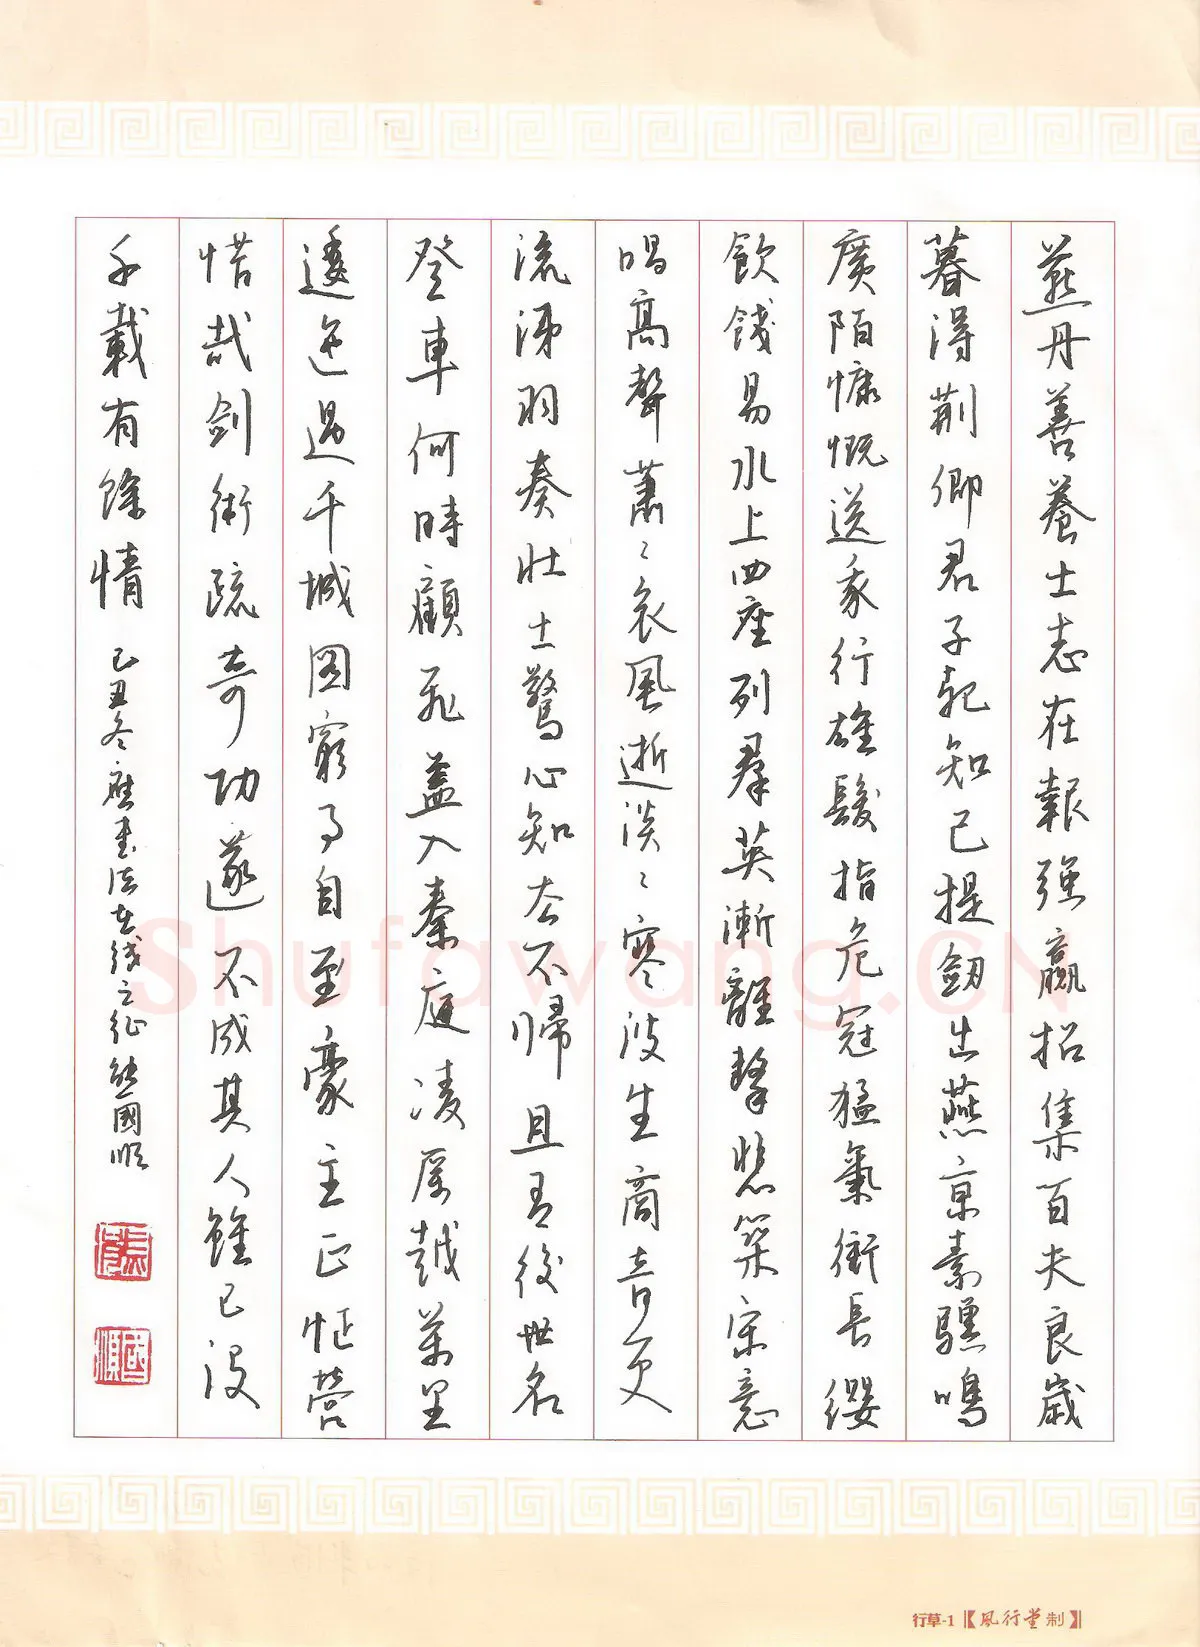 燕丹善養士志在報强嬴招集百夫良歲
暮得荆卿君子死知己提劒出燕京素驥鳴
廣陌慷慨送我行雄髮指危冠猛氣衝長纓
飲餞易水上四座列羣英漸離擊悲築宋意
唱高聲蕭〻哀風逝淡〻寒波生商音更
流涕羽奏壯士驚心知去不歸且有後世名
登車何時顧飛蓋入秦庭凌厲越萬里
逶迤過千城圖窮事自至豪主正怔營
惜哉劍術疏奇功遂不成其人雖已沒
千載有餘情 己丑冬應書法在线之征 熊國順
國順
Shufawang.CN
行草-1【風行堂制】